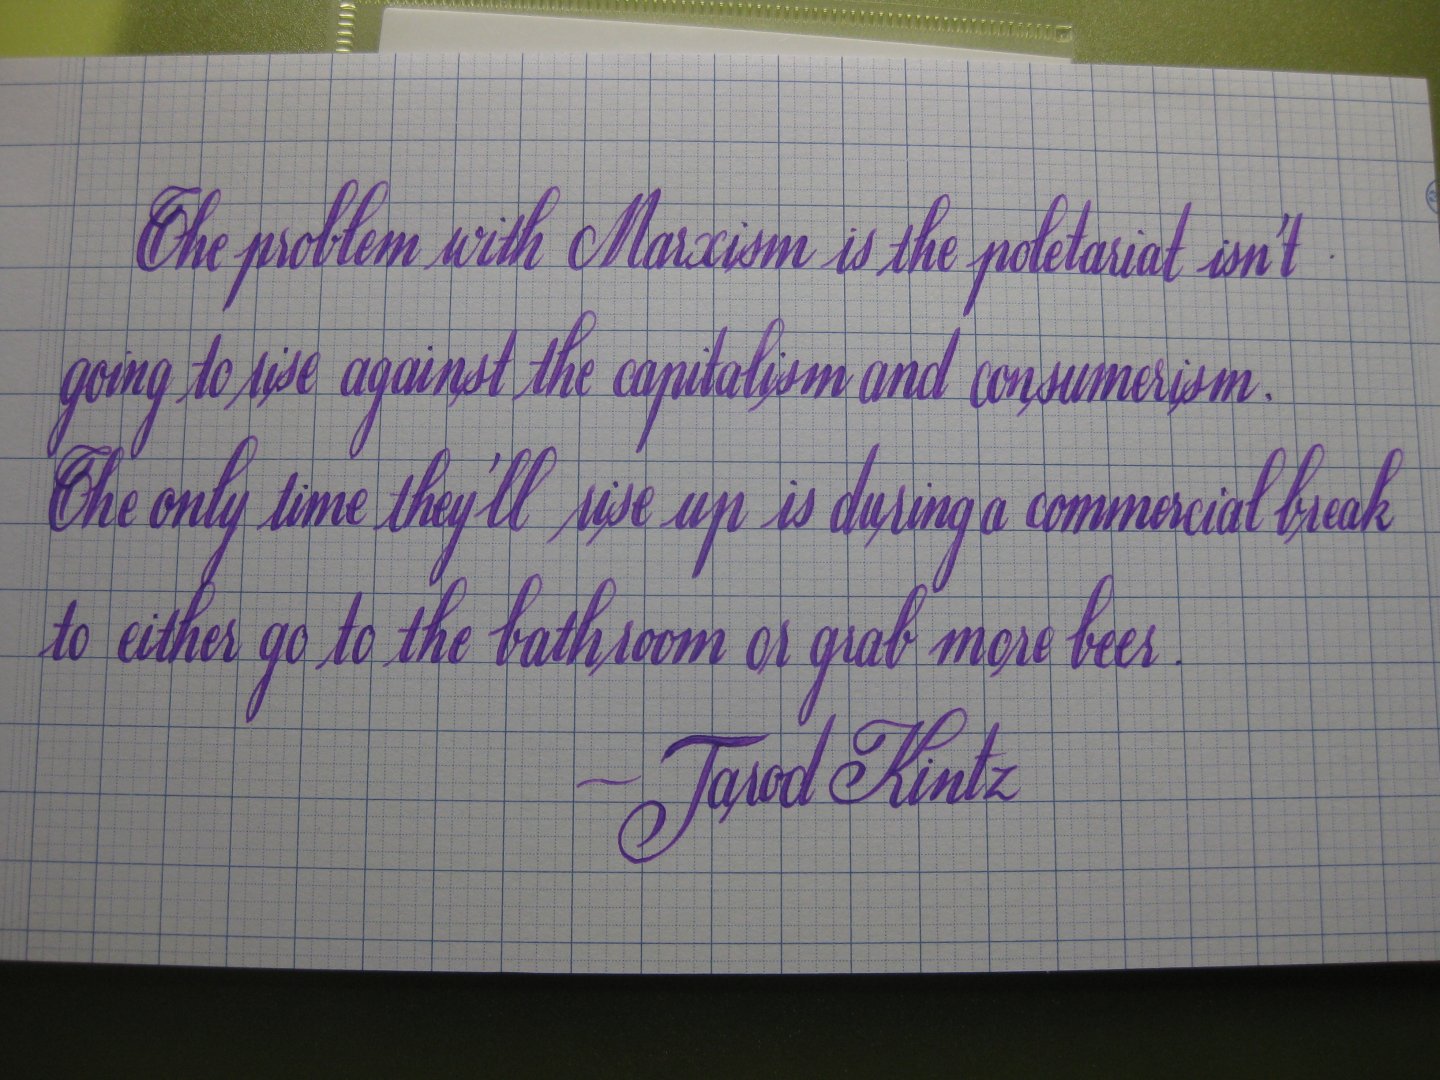 The problem with Marxism is the poletariat isn't
going to rise against the capitalism and consumerism.
The only time they'll rise up is during a commercial break
to either go to the bathroom or grab more beer.
~ Jarod Kintz